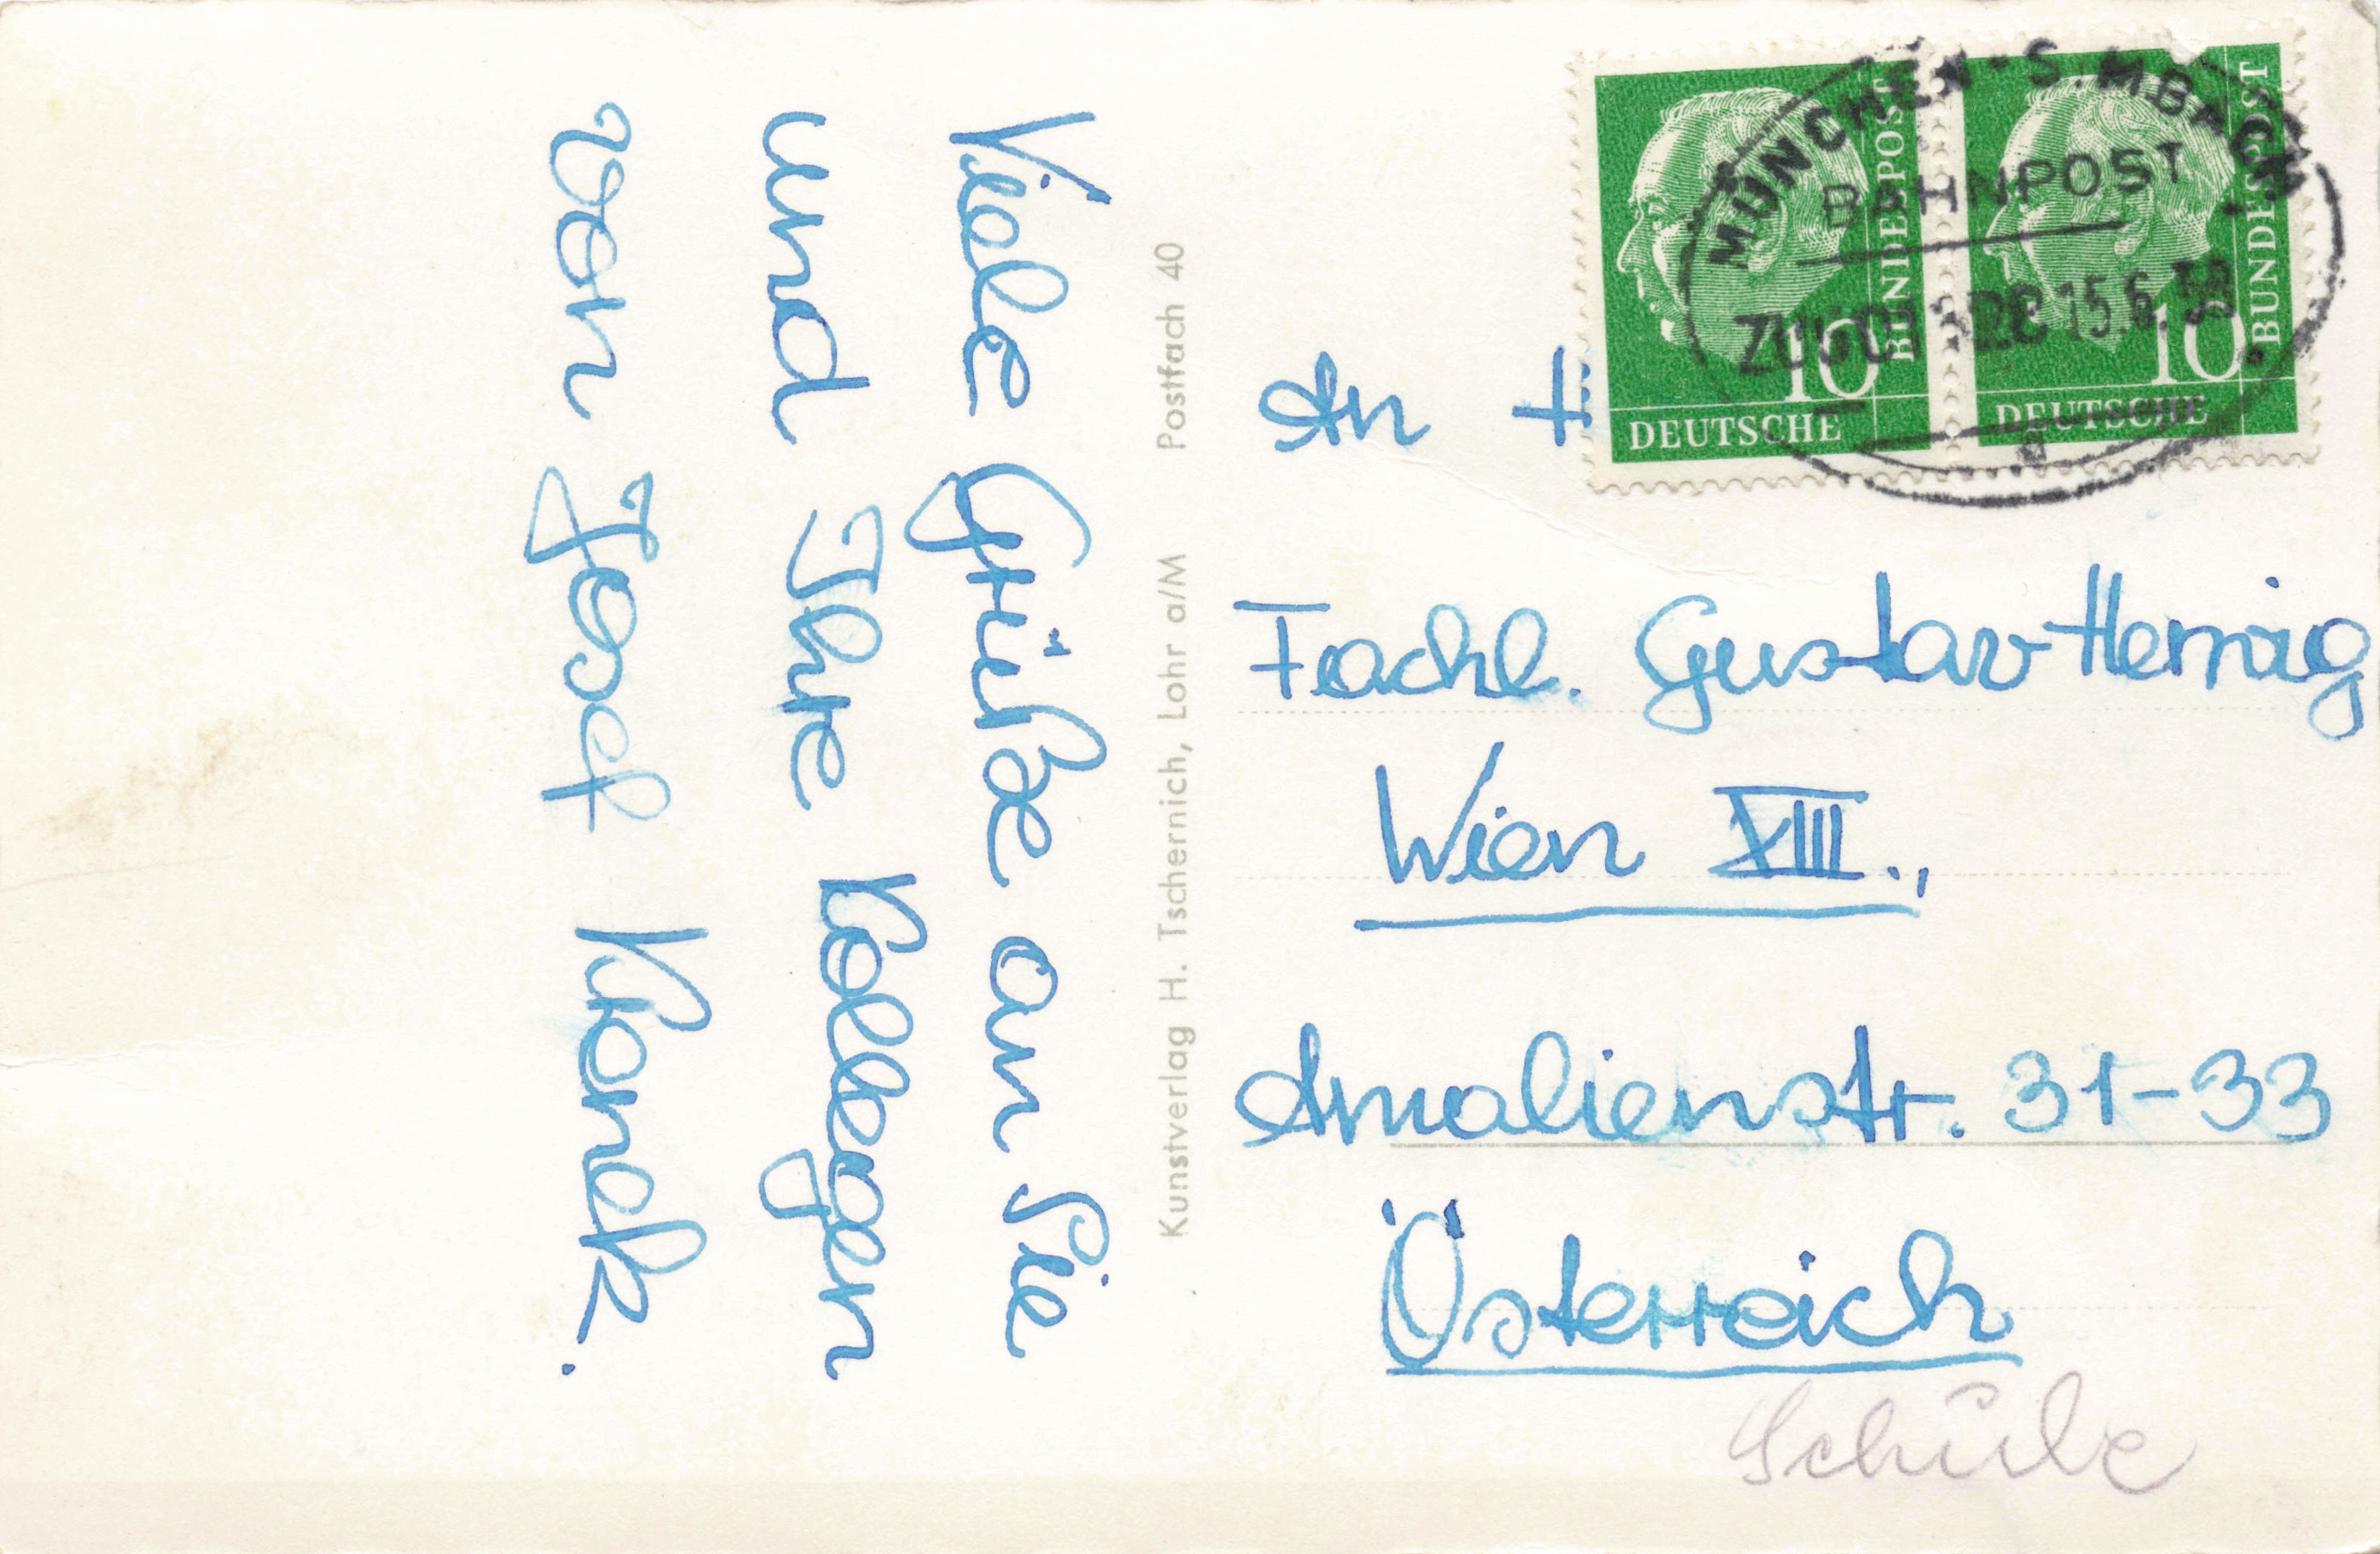 Viele Grüße an Sie
und Ihre Kollegen
von Josef
Kunstverlag H. Tschernich, Lohr a/M Postfach 40
DEUTSCHE
BUNDESPOST
10
DEUTSCHE
BUNDESPOST
10
MÜNCHEN-S.MBACH
BAHNPOST
15.6.58
An H
Fachl. Gustav
Wien XIII.,
Amalienstr. 31-33
Österreich
Schule